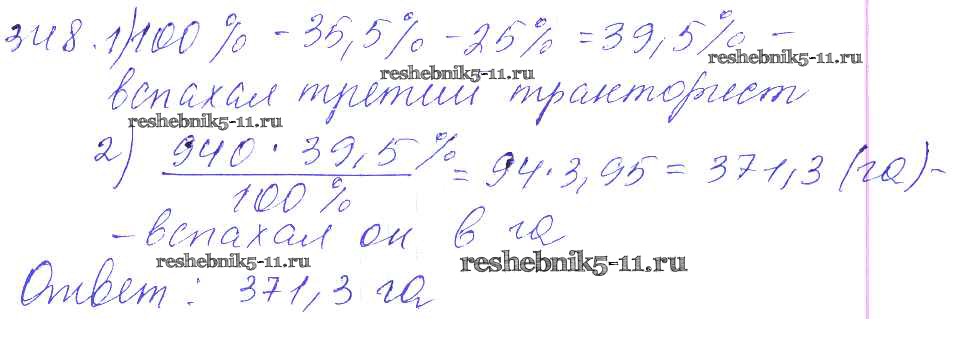 348. 1) 100% - 35,5% - 25% = 39,5% -
reshebnik5-11.ru
reshebnik5-11.ru
вспахал третий тракторист
reshebnik5-11.ru
2) 940 · 39,5% / 100% = 94 · 3,95 = 371,3 (га) -
- вспахал он в га
reshebnik5-11.ru
reshebnik5-11.ru
Ответ: 371,3 га